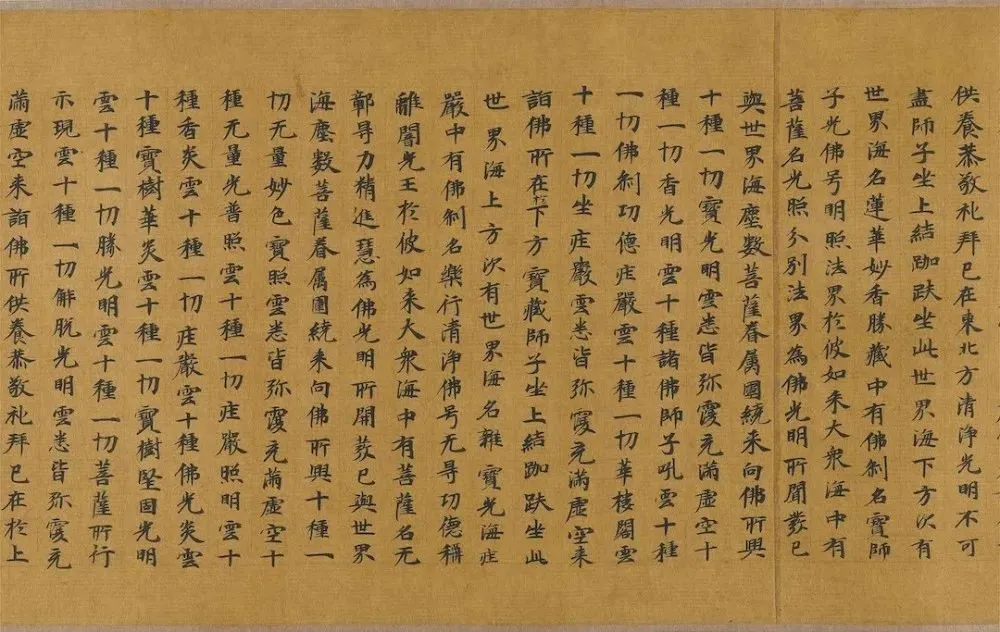 供養恭敬礼拜已在東北方清淨光明不可
盡師子坐上結跏趺坐此世界海下方次有
世界海名蓮華妙香勝藏中有佛刹名寶師
子光佛号明照法界於彼如来大衆海中有
菩薩名光照分別法界為佛光明所開發已
與世界海塵數菩薩眷属圍繞来向佛所興
十種一切寶光明雲悉皆弥覆充滿虚空十
種一切香光明雲十種諸佛師子吼雲十種
一切佛刹功德疰嚴雲十種一切華樓閣雲
十種一切坐疰嚴雲悉皆弥覆充滿虚空来
詣佛所在於下方寶藏師子坐上結跏趺坐此
世界海上方次有世界海名雜寶光海疰
嚴中有佛刹名樂行清淨佛号无㝵功德稱
離闇光王於彼如来大衆海中有菩薩名无
鄣㝵力精進慧為佛光明所開發已與世界
海塵數菩薩眷属圍繞来向佛所興十種一
切无量妙色寶照雲悉皆弥覆充滿虚空十
種无量光普照雲十種一切疰嚴照明雲十
種香炎雲十種一切疰嚴雲十種佛光炎雲
十種寶樹華炎雲十種一切寶樹堅固光明
雲十種一切勝光明雲十種一切菩薩所行
示現雲十種一切解脱光明雲悉皆弥覆充
滿虚空来詣佛所供養恭敬礼拜已在於上